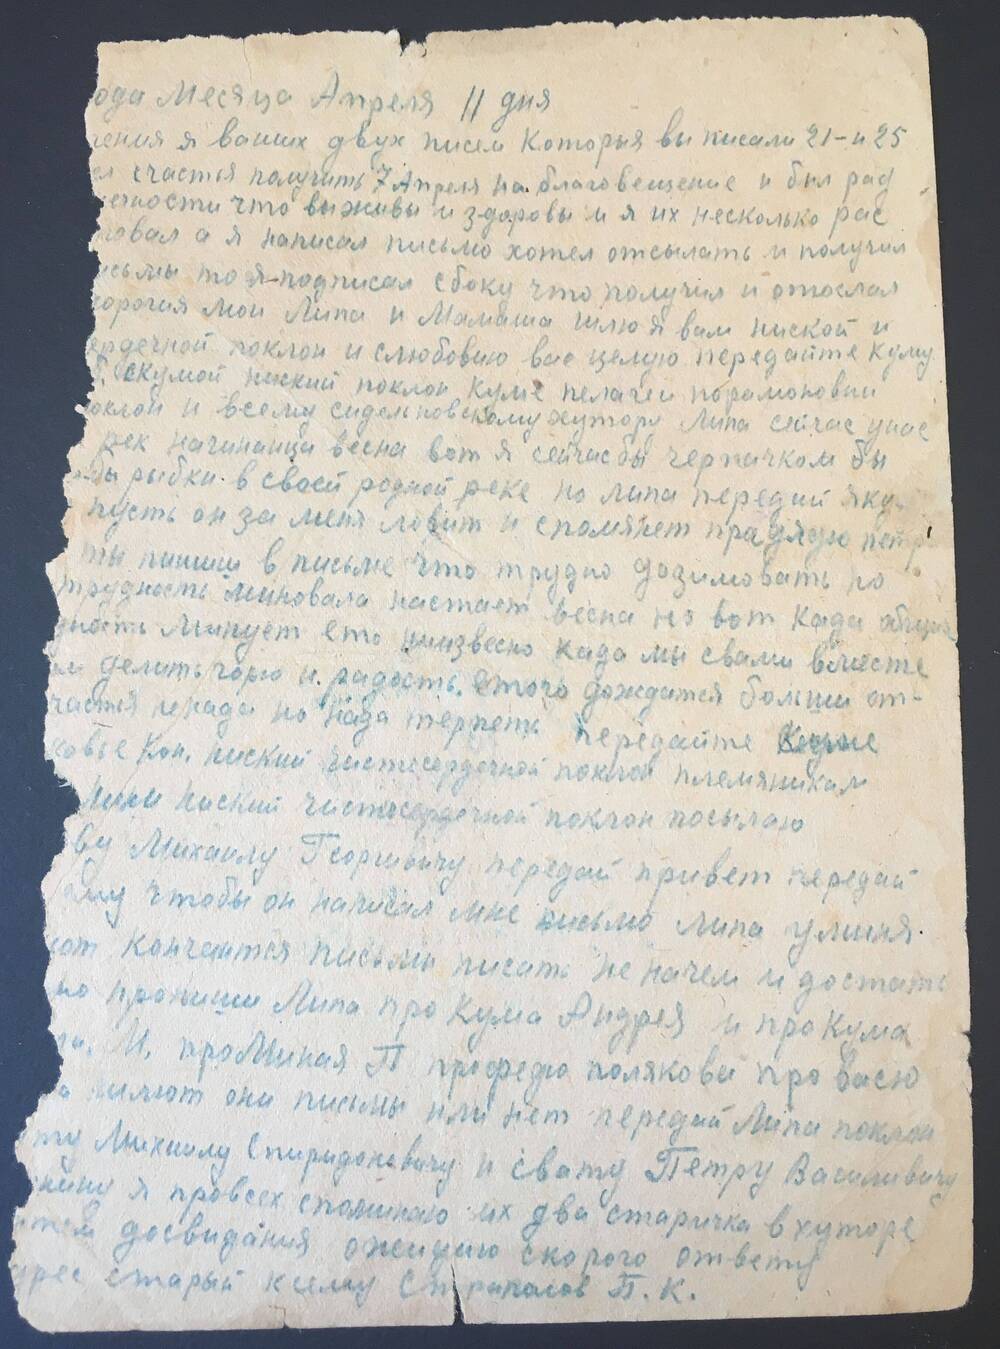 ода Месяца Апреля 11 дня
чения я ваших двух писем Которыя вы писали 21-и 25
ел счастья получить 7 Апреля на благовещение и был рад
что вы живы и здоровы и я их несколько рас
ловал а я написал письмо хотел отсылать и получил
исьмы то я подписал сбоку что получил и отослал
дорогия мои Липа и Мамаша шлю я вам ниской и
ердечной поклон и слюбовию вас целую передайте куму
скумой ниский поклон куме пелагеи порамоновни
поклон и всему сидельновскому хутору Липа сейчас унас
рек начинаица весна вот я сейчас бы черпачком бы
бы рыбки в своей родной реке но липа передай яку
пусть он за меня ловит и спомянет про дядю петр
ты пишиш в письме что трудно дозимовать но
трудность миновала настает весна но вот када общая
дность минует ето неизвесно када мы свами вместе
делить горю и радость етого дождатся больши от-
частся ненада но нада терпеть передайте куме
Кон. ниский чистосердечной поклон племяникам
ниский чистосердечной поклон посылаю
ву Михаилу Георгивичу передай привет передай
ему чтобы он написал мне письмо Липа уминя
ют кончаются письмы писать не начем и достать
но пропиши Липа про Кума Андрея и про Кума
М. про Миная П профедю полякова про васю
а шлют они письмы или нет передай Липа поклон
ту Михаилу Спиридоновичу и свату Петру Василивичу
я провсех спаминаю их два старичка в хуторе
атем досвидания ожидаю скорого ответу
дрес старый к сему П. К.